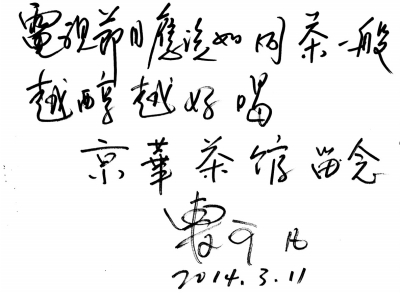 電視節目應該如同茶一般
越醇越好喝
京華茶馆留念
曹可凡
2014.3.11